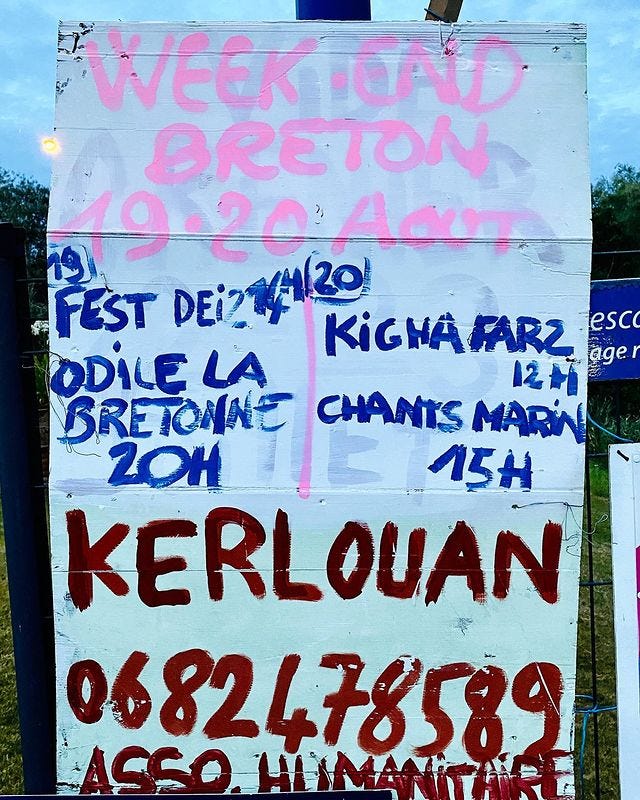 WEEK-END
BRETON
19-20 AOUT
19
FEST DEIZ 14H
ODILE LA
BRETONNE
20H
20
KIGHA FARZ
12H
CHANTS MARIN
15H
KERLOUAN
0682478589
ASSO. HUMANITAIRE
esco
age r